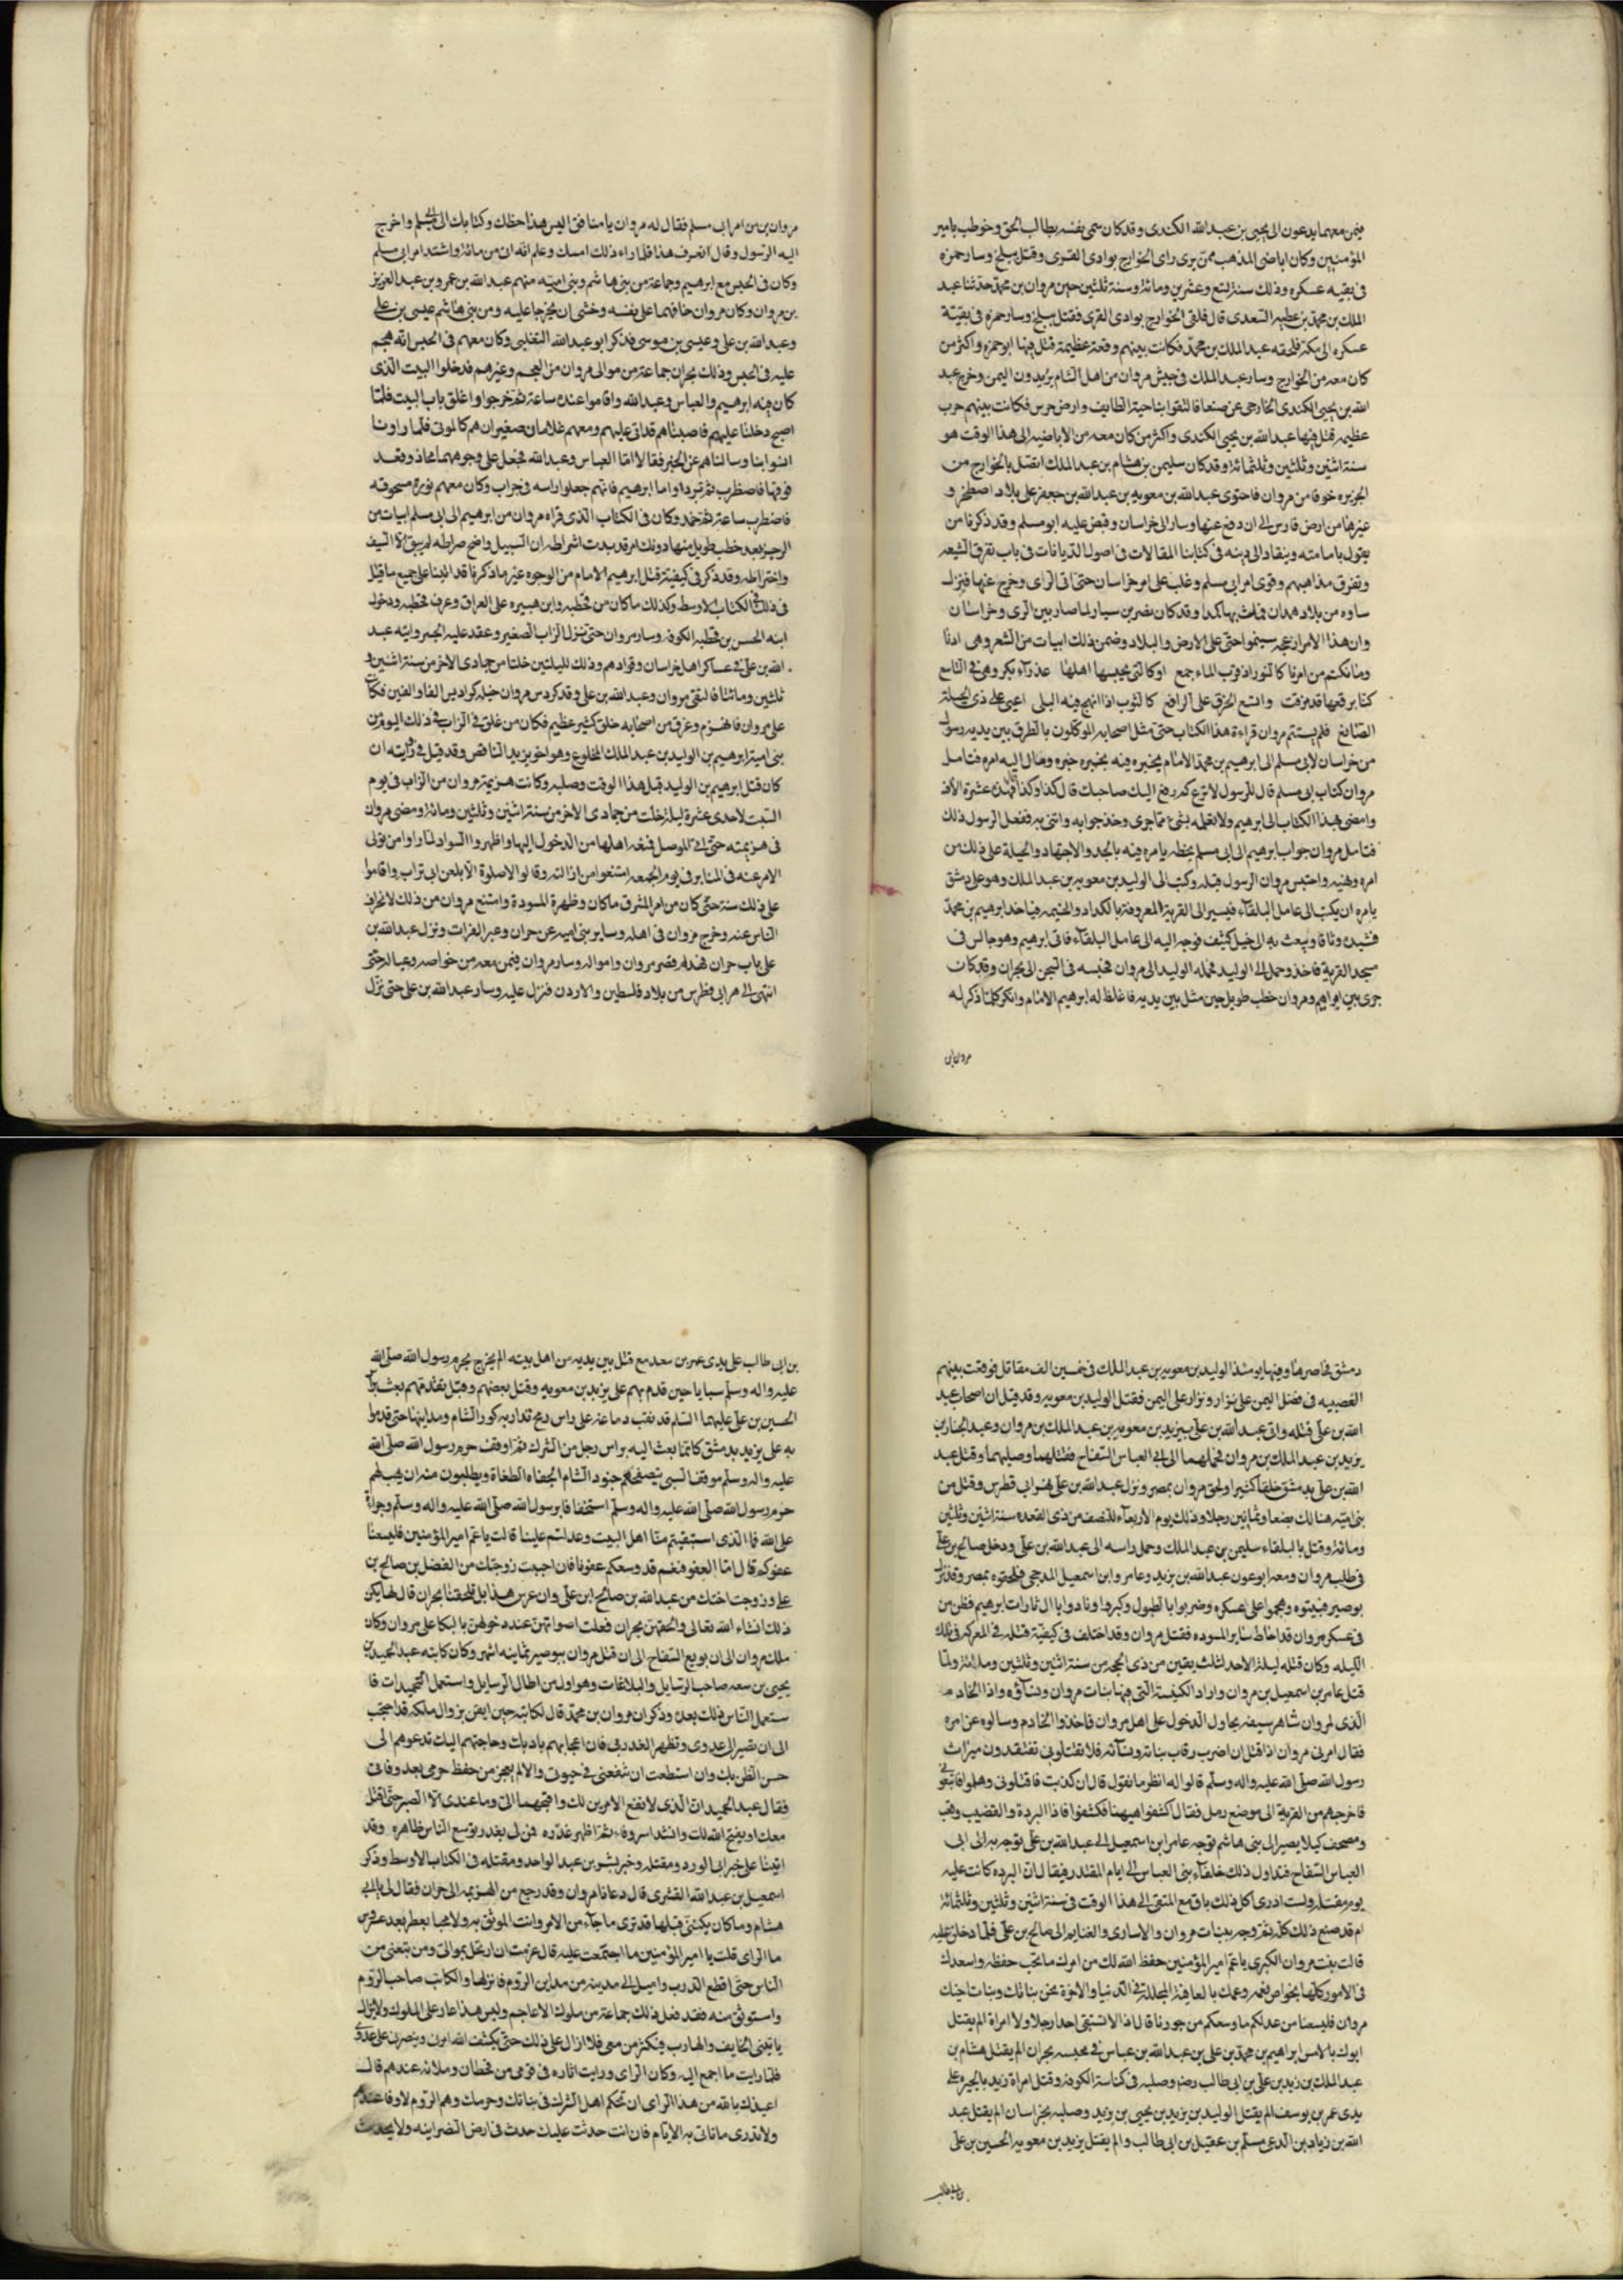 فيمن معهما يدعون الى يحيى بن عبد الله الكندى وقد كان سمى نفسه بطالب الحق وخوطب بامير
المؤمنين وكان اباضى المذهب ممن يرى راى الخوارج بوادى القرى وقتل ببلخ وسار حمزه
فى بقيه عسكره وذلك سنة تسع وعشرين ومائة وسنة ثلثين جهز مروان بن محمد حدثنا عبد
الملك بن محمد بن عطيه السعدى قال فلقى الخوارج بوادى القرى فقتل ببلخ وسار حمزه فى بقيّة
عسكره الى مكة فلحقه عبد الملك بن محمد فكانت بينهم وقعة عظيمة قتل فيها ابو حمزه واكثر من
كان معه من الخوارج وسار عبد الملك فى جيش مروان من اهل الشام يريدون اليمن وخرج عبد
الله بن يحيى الكندى الخارجى عن صنعا فالتقوا بناحية الطايف وارض جرس فكانت بينهم حرب
عظيمه قتل فيها عبد الله بن يحيى الكندى واكثر من كان معه من الاباضيه الى هذا الوقت هو
سنة اثنين وثلثين وثلثمائة وقد كان سليمن بن هشام بن عبد الملك اتصل بالخوارج من
الجزيره خوفا من مروان فاحتوى عبد الله بن معويه بن عبد الله بن جعفر على بلاد اصطخر و
غيرها من ارض فارس الى ان دفع عنها وسار الى خراسان وقبض عليه ابو مسلم وقد ذكرنا من
يقول بامامته وينقاد الى دينه فى كتابنا المقالات فى اصول الديانات فى باب تفرق الشيعه
وتفرق مذاهبهم وقوى امر ابى مسلم وغلب على امر خراسان حتى اتى الرى وخرج عنها فنزل
ساوه من بلاد همدان فمات بها كمدا وقد كان نصر بن سيار لما صار بين الرى وخراسان
وان هذا الامر ازعجه سينموا حتى على الارض والبلاد وضمن ذلك ابيات من الشعر وهى ادنا
وما نكتم من امرنا كالثور اذ قرب الماء جمع اوكالتى يحسبها اهلها عذراء بكر وهى فى التاسع
كنا برقعها قد مزقت واتسع الخرق على الرافع كالثوب اذا انهج فيه البلى اعيى على ذى الحيلة
الصانع فلم يستتم مروان قراءة هذا الكتاب حتى مثل اصحابه الموكلون بالطرق بين يديه رسول
من خراسان لابى مسلم الى ابرهيم بن محمد الامام يخبره فيه بخبره وما ال اليه امره فتامل
مروان كتاب ابى مسلم قال للرسول لا ترع كم دفع اليك صاحبك قال كذا وكذا قال فهذه عشرة الاف
وامض بهذا الكتاب الى ابرهيم ولا تعلمه بشى مما جرى وخذ جوابه واتنى به ففعل الرسول ذلك
فتامل مروان جواب ابرهيم الى ابى مسلم بخطه يامره فيه بالجد والاجتهاد والحيلة على ذلك من
امره ونهيه واحتبس مروان الرسول قبله وكتب الى الوليد بن معويه بن عبد الملك وهو على دمشق
يامره ان يكتب الى عامل البلقاء فيسير الى القرية المعروفة بالكداد والحميمه فياخذ ابرهيم بن محمد
فشيده وثاقا ويبعث به الى خيل كثيف فوجه اليه الى عامل البلقاء فاتى ابرهيم وهو جالس فى
مسجد القرية فاخذ وحمل الى الوليد فحمله الوليد الى مروان فحبسه فى السجن الى بحران وقد كان
جرى بين ابراهيم ومروان خطب طويل حين مثل بين يديه فاغلظ له ابرهيم الامام وانكر كلما ذكر له
مروان بن من امر ابى مسلم فقال له مروان يا منافق اليس هذا خطك وكتابك الى ابى مسلم واخرج
اليه الرسول وقال اتعرف هذا فلما راء ذلك امسك وعلم انه اتى من مامنه واشتد امر ابى مسلم
وكان فى الحبس مع ابرهيم وجماعة من بنى هاشم وبنى اميه منهم عبد الله بن عمر بن عبد العزيز
بن مروان وكان مروان خافهما على نفسه وخشى ان يخرجا عليه ومن بنى هاشم عيسى بن على
وعبد الله بن على وعيسى بن موسى فذكر ابو عبد الله التغلبى وكان معهم فى الحبس انه هجم
عليه فى الحبس وذلك بحران جماعة من موالى مروان من العجم وغيرهم فدخلوا البيت الذى
كان فيه ابرهيم والعباس وعبد الله واقاموا عنده ساعة ثم خرجوا واغلق باب البيت فلما
اصبح دخلنا عليهم فاصبناهم قد اتى عليهم ومعهم غلامان صغيران هم كالموتى فلما راونا
انسوا بنا وسالناهم عن الخبر فقالا اما العباس وعبد الله فجعل على وجوههما مخاد وقعد
فوقها فاضطرب ثم تبردا واما ابرهيم فانهم جعلوا راسه فى جراب وكان معهم نوره مسحوقه
فاضطرب ساعة ثم خمد وكان فى الكتاب الذى قراه مروان من ابرهيم الى ابى مسلم ابيات من
الرجز بعد خطب طويل منها دونك امر قد بدت اشراطه ان السبيل واضح صراطه لم يبق الا السيف
واختراطه وقد ذكر فى كيفية قتل ابرهيم الامام من الوجوه غير ما ذكرنا قد اتينا على جميع ما قيل
فى ذلك فى الكتاب الاوسط وكذلك ما كان من قحطبه وابن هبيره على العراق وغرق قحطبه ودخول
ابنه الحسن بن قحطبه الكوفه وسار مروان حتى نزل الزاب الصغير وعقد عليه الجسر واتاه عبد
الله بن على فى عساكر اهل خراسان وقوادهم وذلك لليلتين خلتا من جمادى الاخر من سنة اثنين و
ثلثين ومائتا فالتقى مروان وعبد الله بن على وقد كردس مروان خيله كراديس الفا والفين فكانت
على مروان فانهزم وغرق من اصحابه خلق كثير عظيم فكان من غرق فى الزاب فى ذلك اليوم من
بنى امية ابرهيم بن الوليد بن عبد الملك المخلوع وهو اخو يزيد الناقص وقد قيل فى رواية ان
كان قتل ابرهيم بن الوليد قبل هذا الوقت وصلبه وكانت هزيمة مروان من الزاب فى يوم
السبت لاحدى عشرة ليلة خلت من جمادى الاخر من سنة اثنين وثلثين ومائة ومضى مروان
فى هزيمته حتى اتى الموصل فمنعه اهلها من الدخول اليها واظهروا السواد لما راوا من تولى
الامر عنه فى المنابر فى يوم الجمعه امتنعوا من ازالته وقالوا لا صلوة الا بلعن ابى تراب واقاموا
على ذلك سنة حتى كان من امر المشرق ما كان وظهرة المسودة وامتنع مروان من ذلك لانحراف
الناس عنه وخرج مروان فى اهله وساير بنى اميه عن حران وعبر الفرات ونزل عبد الله بن
على باب حران فهدم قصر مروان وامواله وسار مروان فيمن معه من خواصه وعياله حتى
انتهى الى نهر ابى فطرس من بلاد فلسطين والاردن فنزل عليه وسار عبد الله بن على حتى نزل
دمشق فحاصرها وفيها يومئذ الوليد بن معويه بن عبد الملك فى خمسين الف مقاتل فوقعت بينهم
العصبيه فى فضل اليمن على نزار ونزار على اليمن فقتل الوليد بن معويه وقد قيل ان اصحاب عبد
الله بن على قتله واتى عبد الله بن على بيزيد بن معويه بن عبد الملك بن مروان وعبد الجبار بن
يزيد بن عبد الملك بن مروان فحملهما الى ابى العباس السفاح فقتلهما وصلبهما وقتل عبد
الله بن على بدمشق خلقا كثيرا ولحق مروان بمصر ونزل عبد الله بن على نهر ابى قطرس وقتل من
بنى اميه هنالك بضعا وثمانين رجلا وذلك يوم الاربعاء للنصف من ذى القعده سنة اثنين وثلثين
ومائة وقتل بالبلقاء سليمن بن عبد الملك وحمل راسه الى عبد الله بن على ودخل صالح بن على
فى طلب مروان ومعه ابو عون عبد الله بن يزيد وعامر وابن اسمعيل المدحجى فلحقوه بمصر وقد نزل
بوصير فبيتوه وهجموا على عسكره وضربوا بالطبول وكبروا ونادوا يا ال ثارات ابرهيم فظن من
فى عسكر مروان قد احاط ساير المسوده فقتل مروان وقد اختلف فى كيفية قتله فى المعركه فى تلك
الليله وكان قتله ليلة الاحد لثلث بقين من ذى الحجه من سنة اثنين وثلثين ومائة ولما
قتل عامر بن اسمعيل بن مروان واراد الكنيسة التى فيها بنات مروان ونساؤه واذا الخادم
الذى لمروان شاهر سيفه يحاول الدخول على اهل مروان فاخذوا الخادم وسالوه عن امره
فقال امرنى مروان اذا قتل ان اضرب رقاب بناته ونسائه فلا تقتلونى تفتقدون ميراث
رسول الله صلى الله عليه واله وسلم قالوا له انظر ما تقول قال ان كذبت فاقتلونى وهلموا فاتبعونى
فاخرجهم من القرية الى موضع رمل فقال اكشفوا هيهنا فكشفوا فاذا البردة والقضيب وقعب
ومصحف كيلا يصير الى بنى هاشم فوجه عامر ابن اسمعيل الى عبد الله بن على فوجه به الى ابى
العباس السفاح فتداول ذلك خلفاء بنى العباس الى ايام المقتدر فيقال ان البرده كانت عليه
يوم مقتله ولست ادرى اكل ذلك باق مع المتقى الى هذا الوقت فى سنة اثنين وثلثين وثلثمائة
ام قد صنع ذلك كله ثم وجه ببنات مروان والاسارى والغنايم الى صالح بن على فلما دخلن عليه
قالت بنت مروان الكبرى يا عم امير المؤمنين حفظ الله لك من امرك ما تحب حفظه واسعدك
فى الامور كلها بخواص نعمه وعمك بالعافية المجللة فى الدنيا والاخرة نحن بناتك وبنات اخيك
مروان فليسعنا من عدلكم ما وسعكم من جورنا قال اذا لا نستبقى احدا رجلا ولا امراة الم يقتل
ابوك بالامس ابراهيم بن محمد بن على بن عبد الله بن عباس فى محبسه بحران الم يقتل هشام بن
عبد الملك بن زيد بن على بن ابى طالب رضه وصلبه فى كناسة الكوفه وقتل امراة زيد بالحيره على
يدى عمر بن يوسف الم يقتل الوليد بن يزيد بن يحيى بن زيد وصلبه بخراسان الم يقتل عبد
الله بن زياد بن الدعى مسلم بن عقيل بن ابى طالب والم يقتل يزيد بن معويه الحسين بن على
بن ابى طالب على يدى عمر بن سعد مع قتل بين يديه من اهل بيته الم يخرج بحرم رسول الله صلى الله
عليه واله وسلم سبايا حين قدم بهم على يزيد بن معويه وقتل بعضهم وقبل تقدمهم بعث براس
الحسين بن على عليهما السلم قد نقب دماغه على راس رمح تدار به كور الشام ومداينها حتى قدموا
به على يزيد بدمشق كانما بعث اليه براس رجل من الشرك ثم اوقف حرم رسول الله صلى الله
عليه واله وسلم موقف السبى يتصفحهم جنود الشام الجفاه الطغاة ويطلبون منه ان يهب لهم
حرم رسول الله صلى الله عليه واله وسلم استخفافا برسول الله صلى الله عليه واله وسلم وجراة
على الله فما الذى استبقيتم منا اهل البيت وعدلتم علينا قالت يا عم امير المؤمنين فليسعنا
عفوكم قال اما العفو فنعم قد وسعكم عفونا فان احببت زوجتك من الفضل بن صالح بن
على وزوجت اختك من عبد الله بن صالح ابن على وان عرس هذا بل تلحقنا بحران قال لها يكن
ذلك انشاء الله تعالى والحقهن بحران فعلت اصواتهن عند دخولهن بالبكا على مروان وكان
ملك مروان الى ان بويع السفاح الى ان قتل مروان ببوصير ثمانيه اشهر وكان كاتبه عبد الحميد بن
يحيى بن سعد صاحب الرسايل والبلاغات وهو اول من اطال الرسايل واستعمل التحميدات فا
ستعمل الناس ذلك بعده وذكر ان مروان بن محمد قال لكاتبه حين ايقن بزوال ملكه قد احتجت
الى ان تصير الى عدوى وتظهر الغدر بى فان اعجابهم بادبك وحاجتهم اليك تدعوهم الى
حسن الظن بك وان استطعت ان تنفعنى فى حيوتى والا لم تعجز من حفظ حرمى بعد وفاتى
فقال عبد الحميد ان الذى لا نفع الامرين لك واقبحهما الى وما عندى الا الصبر حتى اقتل
معك او يفتح الله لك وانشد اسر وفاء ثم اظهر غدره فمن لى بعذر يوسع الناس ظاهره وقد
اتينا على خبر ابى الورد ومقتله وخبر بشر بن عبد الواحد ومقتله فى الكتاب الاوسط وذكر
اسمعيل بن عبد الله القشرى قال دعانا مروان وقد رجع من الهزيمه الى حران فقال لى يا ابا
هشام وما كان يكننى قبلها قد ترى ما جاء من الامر وانت الموثق به ولا مخبا بعطر بعد عروس
ما الراى قلت يا امير المؤمنين ما اجتمعت عليه قال عزمت ان ارتحل بموالى ومن تبعنى من
الناس حتى اقطع الدرب واميل الى مدينه من مداين الروم فانزلها والكاتب صاحب الروم
واستوثق منه فقد فعل ذلك جماعة من ملوك الاعاجم وليس هذا عار على الملوك ولا يزال
ياتينى الخايف والهارب فيكثر من معى فلا ازال على ذلك حتى يكشف الله امرى وينصرنى على عدوى
فلما رايت ما اجمع اليه وكان الراى ورايت اثاره فى قومى من قحطان وملائه عندهم قال
اعيذك بالله من هذا الراى ان تحكم اهل الشرك فى بناتك وحرمك وهم الروم لا وفا عندهم
ولا تدرى ما تاتى به الايام فان انت حدثت عليك حدث فى ارض النصرانيه ولا يحدث